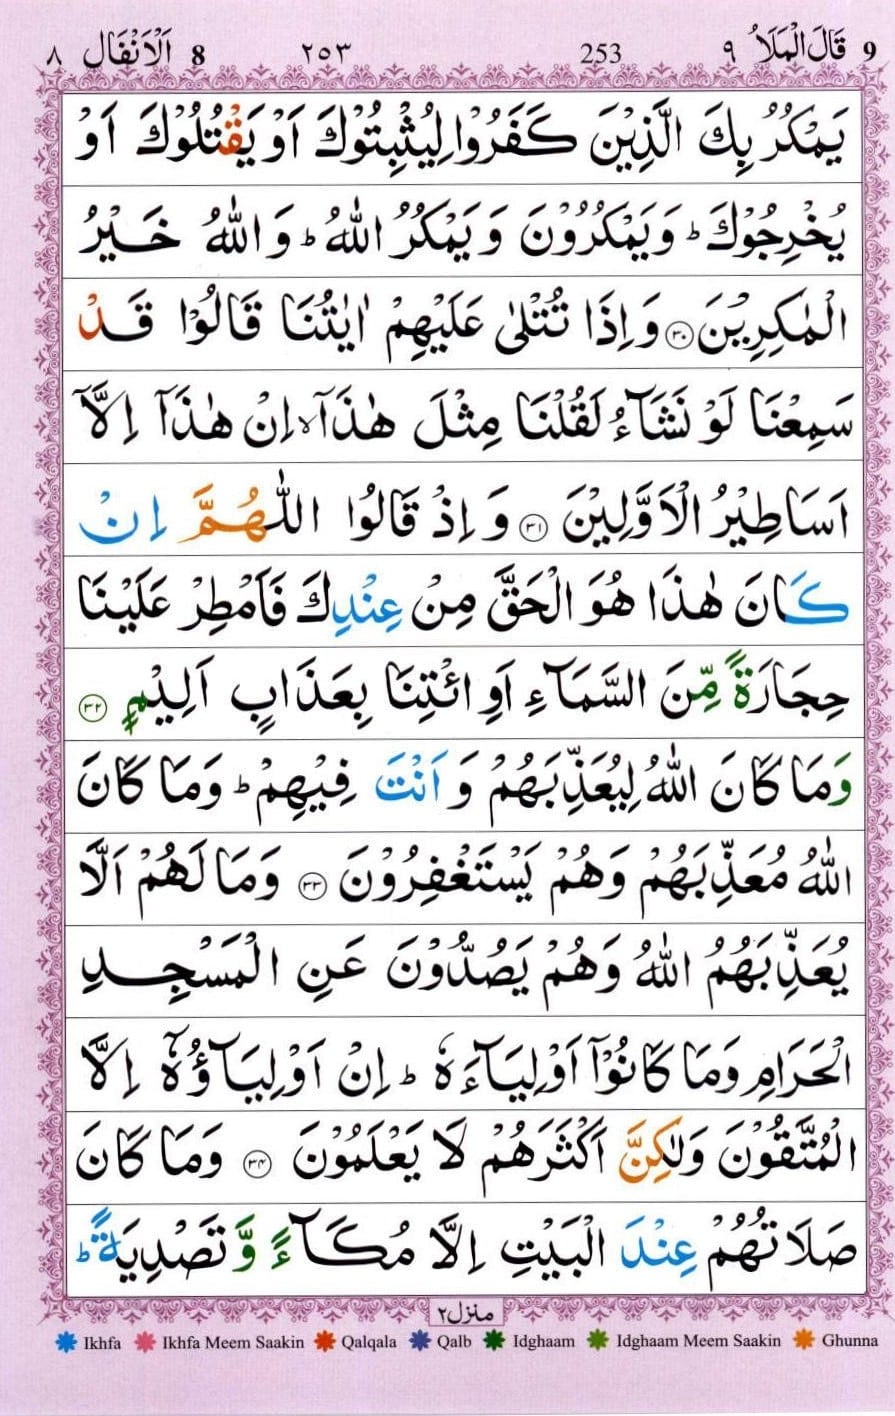 9 قَالَ الْمَلَاُ ٩ 253 ٢٥٣ 8 اَلْاَنْفَال ٨
يَمْكُرُ بِكَ الَّذِيْنَ كَفَرُوْا لِيُثْبِتُوْكَ اَوْ يَقْتُلُوْكَ اَوْ
يُخْرِجُوْكَ ؕ وَيَمْكُرُوْنَ وَيَمْكُرُ اللّٰهُ ؕ وَاللّٰهُ خَيْرُ
الْمٰكِرِيْنَ ۝۳۰ وَاِذَا تُتْلٰى عَلَيْهِمْ اٰيٰتُنَا قَالُوْا قَدْ
سَمِعْنَا لَوْ نَشَآءُ لَقُلْنَا مِثْلَ هٰذَآ ۙ اِنْ هٰذَآ اِلَّآ
اَسَاطِيْرُ الْاَوَّلِيْنَ ۝۳۱ وَاِذْ قَالُوا اللّٰهُمَّ اِنْ
كَانَ هٰذَا هُوَ الْحَقَّ مِنْ عِنْدِكَ فَاَمْطِرْ عَلَيْنَا
حِجَارَةً مِّنَ السَّمَآءِ اَوِ ائْتِنَا بِعَذَابٍ اَلِيْمٍ ۝۳۲
وَمَا كَانَ اللّٰهُ لِيُعَذِّبَهُمْ وَاَنْتَ فِيْهِمْ ؕ وَمَا كَانَ
اللّٰهُ مُعَذِّبَهُمْ وَهُمْ يَسْتَغْفِرُوْنَ ۝۳۳ وَمَا لَهُمْ اَلَّا
يُعَذِّبَهُمُ اللّٰهُ وَهُمْ يَصُدُّوْنَ عَنِ الْمَسْجِدِ
الْحَرَامِ وَمَا كَانُوْٓا اَوْلِيَآءَهٗ ؕ اِنْ اَوْلِيَآؤُهٗٓ اِلَّا
الْمُتَّقُوْنَ وَلٰكِنَّ اَكْثَرَهُمْ لَا يَعْلَمُوْنَ ۝۳۴ وَمَا كَانَ
صَلَاتُهُمْ عِنْدَ الْبَيْتِ اِلَّا مُكَآءً وَّتَصْدِيَةً ؕ
منزل ٢
Ikhfa Ikhfa Meem Saakin Qalqala Qalb Idghaam Idghaam Meem Saakin Ghunna